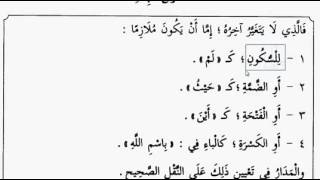 فَالَّذِي لَا يَتَغَيَّرُ آخِرُهُ ؛ إِمَّا أَنْ يَكُونَ مُلَازِمًا :
١ - لِلسُّكُونِ ؛ كَـ « لَمْ » .
٢ - أَوِ الضَّمَّةِ ؛ كَـ « حَيْثُ » .
٣ - أَوِ الْفَتْحَةِ ؛ كَـ « أَيْنَ » .
٤ - أَوِ الْكَسْرَةِ ؛ كَالْبَاءِ فِي : « بِاسْمِ اللَّهِ » .
وَالْمَدَارُ فِي تَعْيِينِ ذَلِكَ عَلَى النَّقْلِ الصَّحِيحِ .